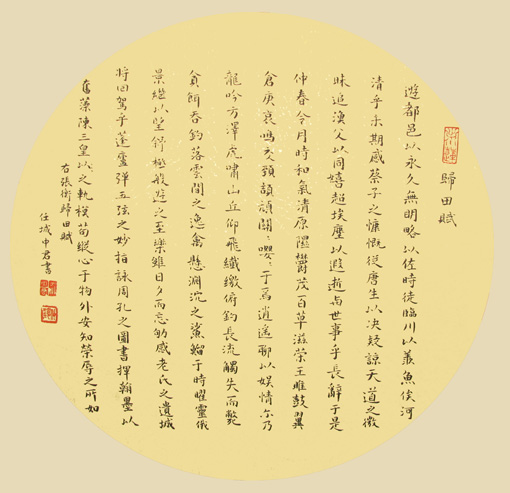 歸田賦
遊都邑以永久無明略以佐時徒臨川以羨魚俟河
清乎未期感蔡子之慷慨從唐生以決疑諒天道之微
昧追漁父以同嬉超埃塵以遐逝与世事乎長辭于是
仲春令月時和氣清原隰欝茂百草滋榮王雎鼓翼
倉庚哀鳴交頸頡頏關〻嚶〻于焉逍遙聊以娛情尓乃
龍吟方澤虎嘯山丘仰飛纖繳俯釣長流觸矢而斃
貪餌吞鈎落雲間之逸禽懸淵沉之鯊鰡于時曜靈俄
景繼以望舒極般遊之至樂雖日夕而忘劬感老氏之遺城
將回駕乎蓬廬彈五弦之妙指詠周孔之圖書揮翰墨以
奮藻陳三皇以之軌模苟縱心于物外安知榮辱之所如
右張衡歸田賦
任城中君書